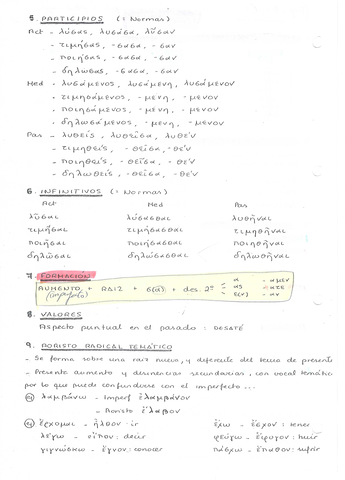 5. PARTICIPIOS (= Normas)
Act - λύσας, λυσάσα, λῦσαν
- τιμήσας, -σασα, -σαν
- ποιήσας, -σασα, -σαν
- δηλώσας, -σασα, -σαν
Med - λυσάμενος, λυσαμένη, λυσάμενον
- τιμησάμενος, -μενη, -μενον
- ποιησάμενος, -μενη, -μενον
- δηλωσάμενος, -μενη, -μενον
Pas - λυθείς, λυθεῖσα, λυθέν
- τιμηθείς, -θεῖσα, -θέν
- ποιηθείς, -θεῖσα, -θέν
- δηλωθείς, -θεῖσα, -θέν
6. INFINITIVOS (= Normas)
Act Med Pas
λῦσαι λύσασθαι λυθῆναι
τιμῆσαι τιμήσασθαι τιμηθῆναι
ποιῆσαι ποιήσασθαι ποιηθῆναι
δηλῶσαι δηλώσασθαι δηλωθῆναι
7. FORMACIÓN
AUMENTO + RAIZ + σ(α) + des. 2ª = α - αμεν
ας - ατε
ε(ν) - αν
8. VALORES
Aspecto puntual en el pasado : DESATÉ
9. AORISTO RADICAL TEMÁTICO
- Se forma sobre una raíz nueva, y diferente del tema de presente
- Presenta aumento y desinencias secundarias, con vocal temática
por lo que puede confundirse con el imperfecto...
ej λαμβάνω - Imperf ἐλάμβανον
- Aoristo ἔλαβον
ej ἔρχομαι - ἦλθον : ir ἔχω - ἔσχον : tener
λέγω - εἶπον : decir φεύγω - ἔφυγον : huir
γιγνώσκω - ἔγνον : conocer πάσχω - ἔπαθον : sufrir